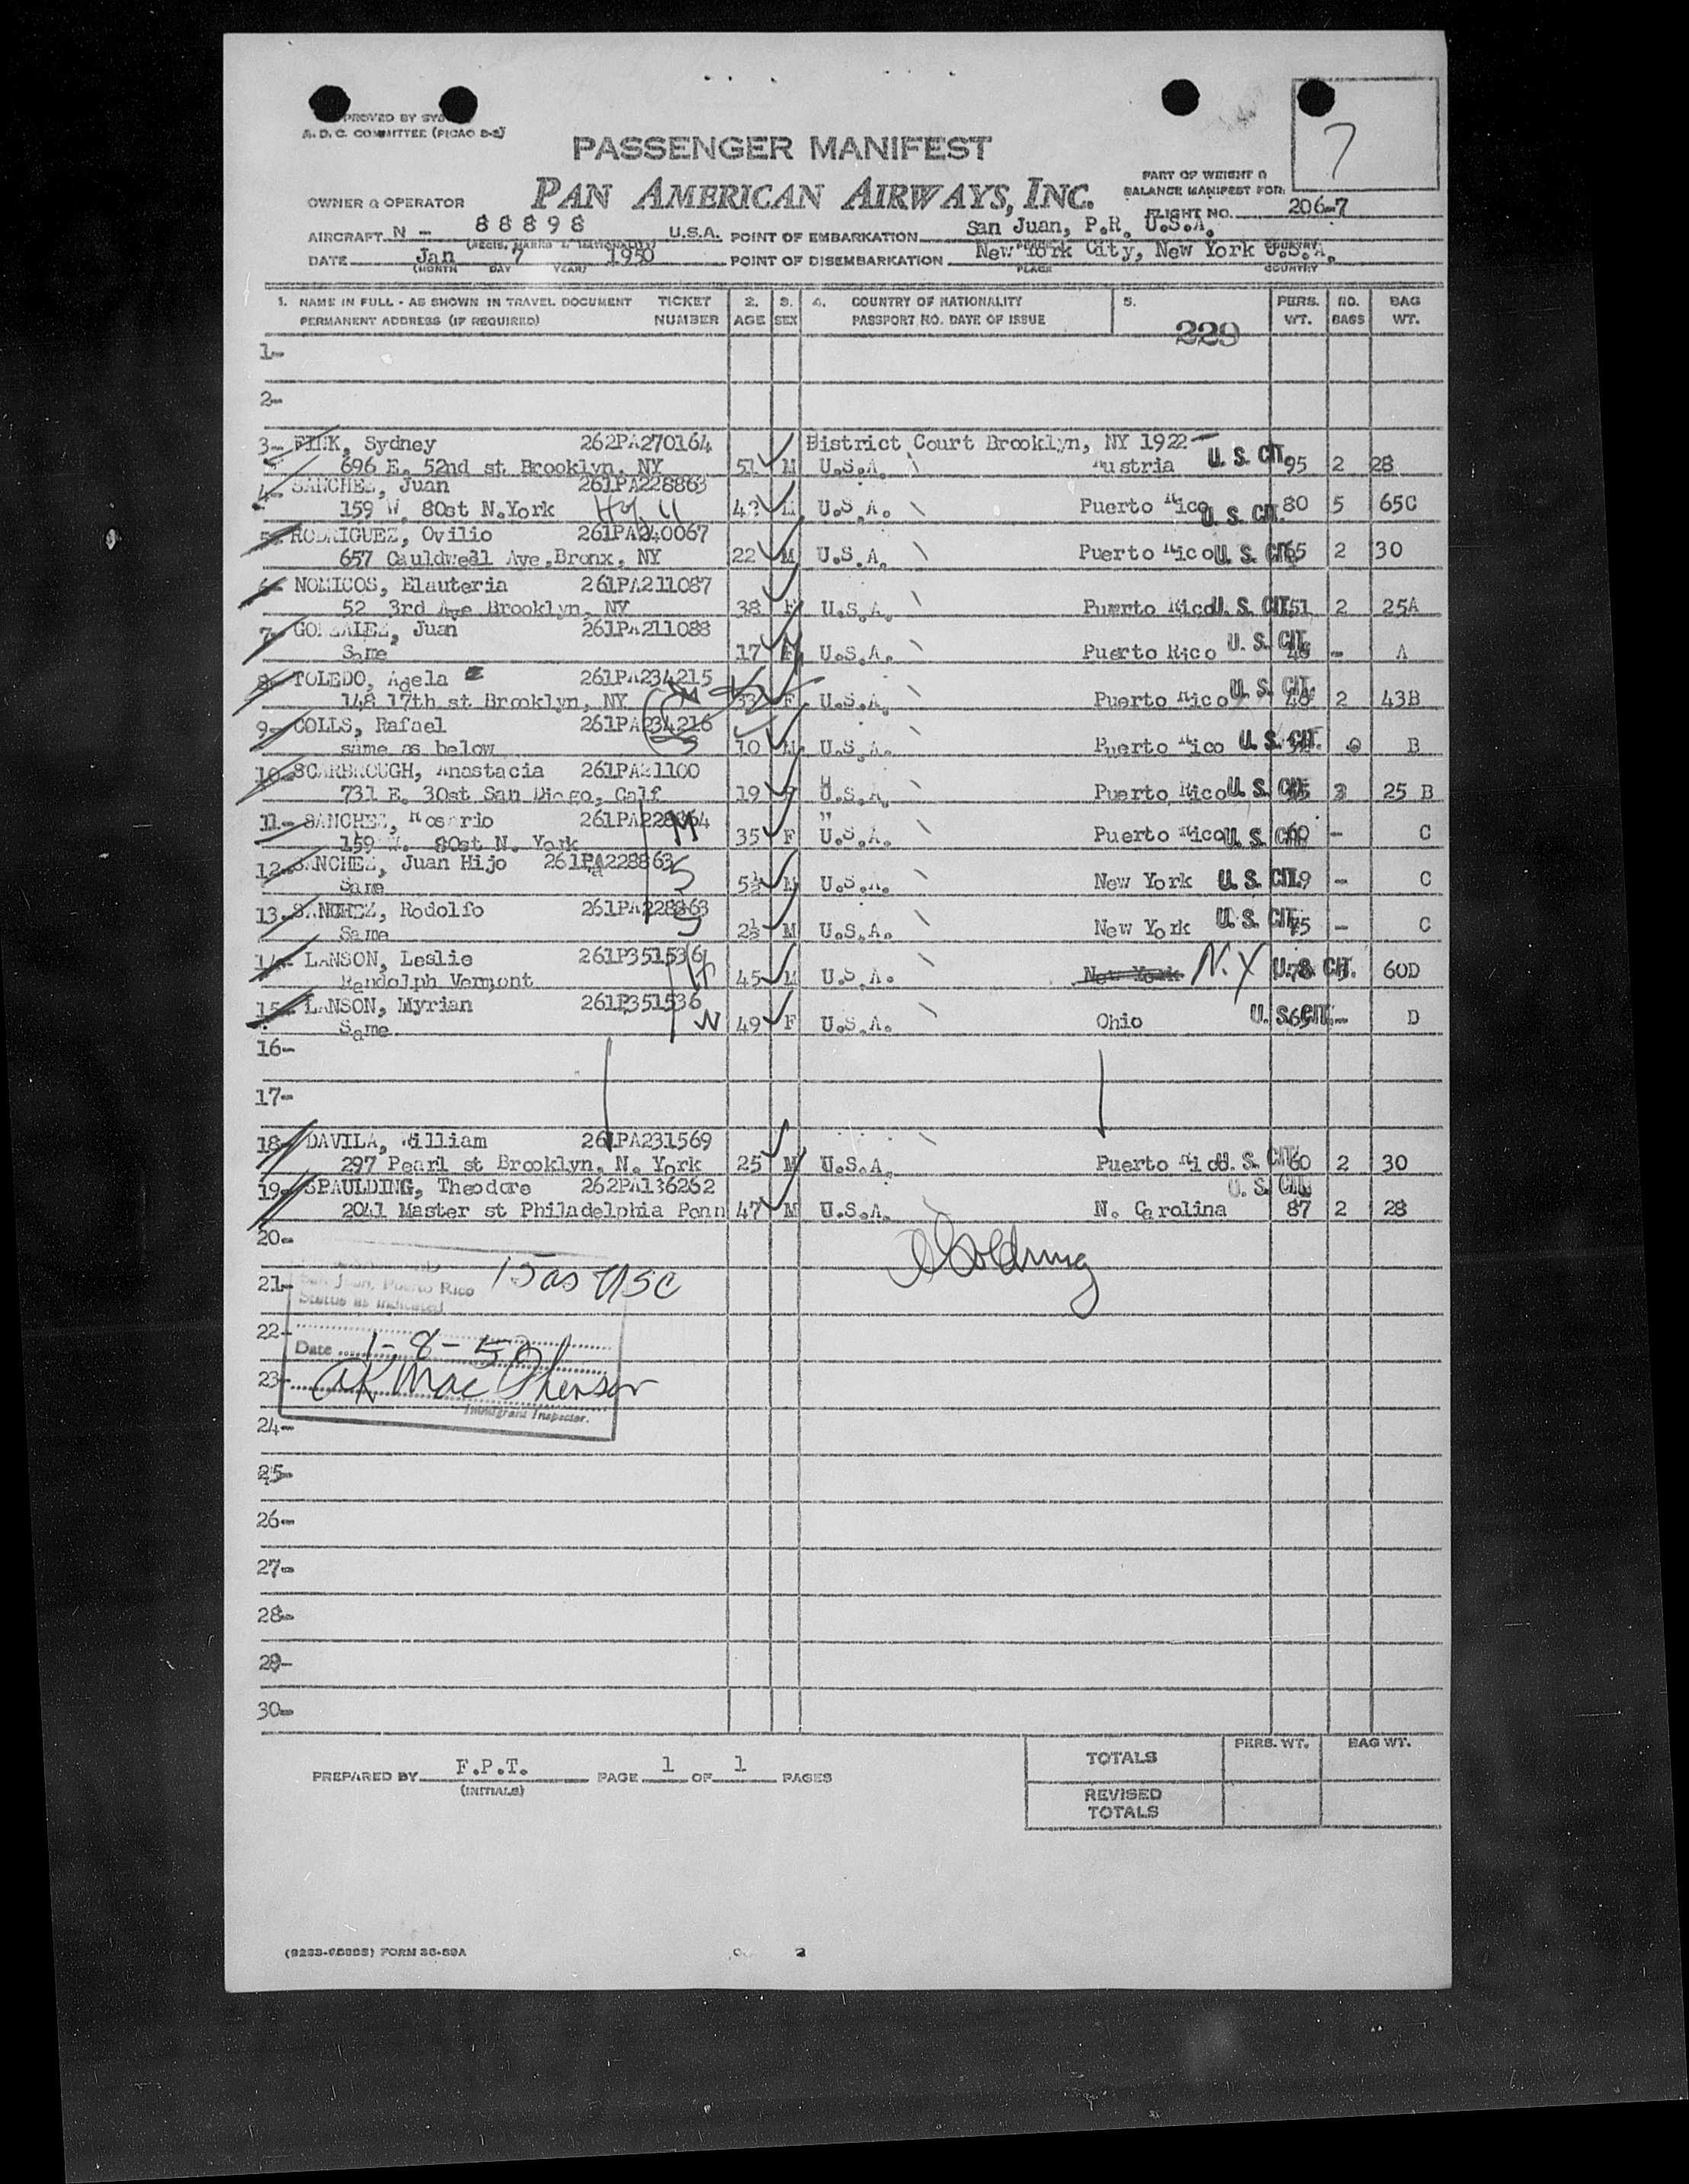 PROVED BY
A. D. C. COMMITTEE (PICAO 2-2)
7
PASSENGER MANIFEST
PART OF WEIGHT &
BALANCE MANIFEST FOR:
OWNER & OPERATOR PAN AMERICAN AIRWAYS, INC.
FLIGHT NO. 206-7
AIRCRAFT N - 88898 U.S.A. POINT OF EMBARKATION San Juan, P.R. U.S.A.
(REGIS. MARKS & NATIONALITY) PLACE COUNTRY
DATE Jan 7 1950 POINT OF DISEMBARKATION New York City, New York U.S.A.
(MONTH DAY YEAR) PLACE COUNTRY
1. NAME IN FULL - AS SHOWN IN TRAVEL DOCUMENT TICKET 2. 3. 4. COUNTRY OF NATIONALITY 5. PERS. NO. BAG
PERMANENT ADDRESS (IF REQUIRED) NUMBER AGE SEX PASSPORT NO. DATE OF ISSUE 229 WT. BAGS WT.
1-
2-
3- FINK, Sydney 262PA270164 District Court Brooklyn, NY 1922
696 E. 52nd st Brooklyn, NY M U.S.A. Austria U. S. CIT. 95 2 28
4- SANCHEZ, Juan 261PA228863
159 W. 80st N.York M U.S.A. Puerto Rico U. S. CIT. 80 5 65C
5- RODRIGUEZ, Ovilio 261PA240067
657 Cauldwell Ave.Bronx, NY 22 M U.S.A. Puerto Rico U. S. CIT. 65 2 30
6- NOMICOS, Elauteria 261PA211087
52 3rd Ave Brooklyn, NY 38 F U.S.A. Puerto Rico U. S. CIT. 51 2 25A
7- GONZALEZ, Juan 261PA211088
Same 17 U.S.A. Puerto Rico U. S. CIT. - A
8- TOLEDO, Agela 261PA234215
148 17th st Brooklyn, NY 33 F U.S.A. Puerto Rico U. S. CIT. 2 43B
9- COLLS, Rafael 261PA234216
same as below 10 M U.S.A. Puerto Rico U. S. CIT. B
10- SCARBROUGH, Anastacia 261PA21100
731 E. 30st San Diego, Calf 19 U.S.A. Puerto Rico U. S. CIT. 25 B
11- SANCHEZ, Rosario 261PA228864 M
159 W. 80st N. York 35 F U.S.A. Puerto Rico U. S. CIT. 60 - C
12- SANCHEZ, Juan Hijo 261PA228863 S
Same 5½ M U.S.A. New York U. S. CIT. 19 - C
13- SANCHEZ, Rodolfo 261PA228863 S
Same 2½ M U.S.A. New York U. S. CIT. - C
14- LANSON, Leslie 261P351536
Randolph Vermont 45 M U.S.A. New York N.Y U. S. CIT. 60D
15- LANSON, Myrian 261P351536
Same W 49 F U.S.A. Ohio U. S. CIT. 65 - D
16-
17-
18- DAVILA, William 261PA231569
297 Pearl st Brooklyn, N. York 25 M U.S.A. Puerto Rico U. S. CIT. 60 2 30
19- SPAULDING, Theodore 262PA136262 U. S. CIT.
2041 Master st Philadelphia Penn 47 M U.S.A. N. Carolina 87 2 28
20-
21- San Juan, Puerto Rico 15 as USC
Status as indicated
22-
Date 1-8-50
23- MacPherson
Immigrant Inspector.
24-
25-
26-
27-
28-
29-
30-
TOTALS PERS. WT. BAG WT.
PREPARED BY F.P.T. PAGE 1 OF 1 PAGES
(INITIALS)
REVISED
TOTALS